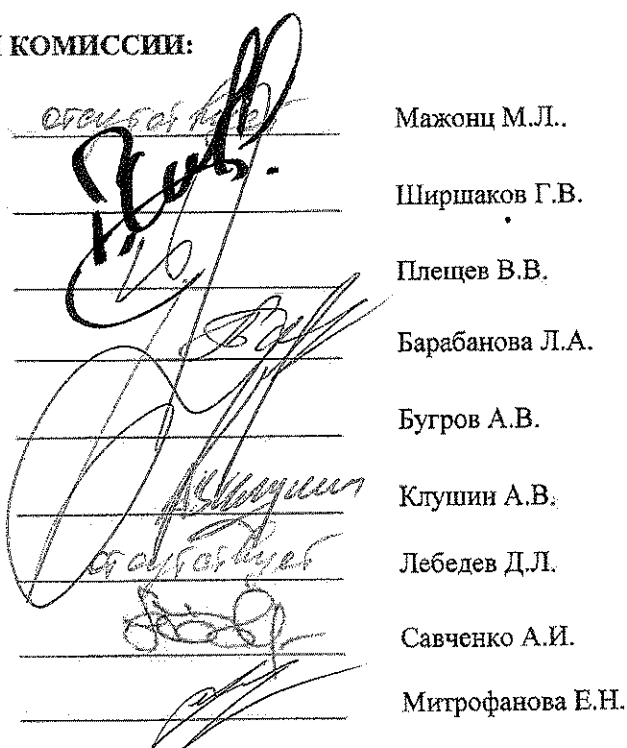 КОМИССИИ:
отсутствует Мажонц М.Л..
Ширшаков Г.В.
Плещев В.В.
Барабанова Л.А.
Бугров А.В.
Клушин А.В.
отсутствует Лебедев Д.Л.
Савченко А.И.
Митрофанова Е.Н.